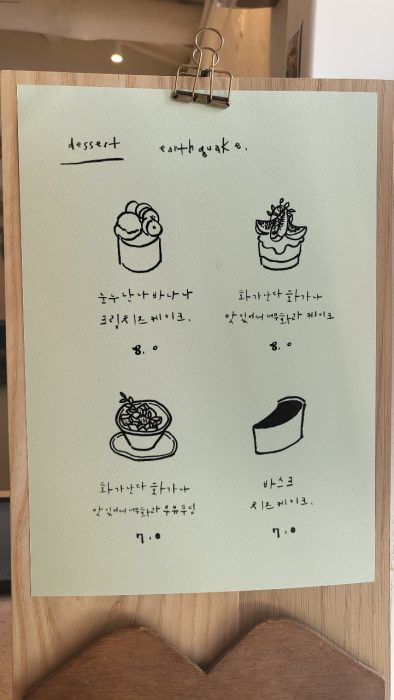 dessert earthquake.
눈누난나 바나나
크림치즈케이크.
8.0
화가난다 화가나
맛있어서 너무화라 케이크
8.0
화가난다 화가나
맛있어서 너무화라 우유푸딩
7.0
바스크
치즈케이크.
7.0